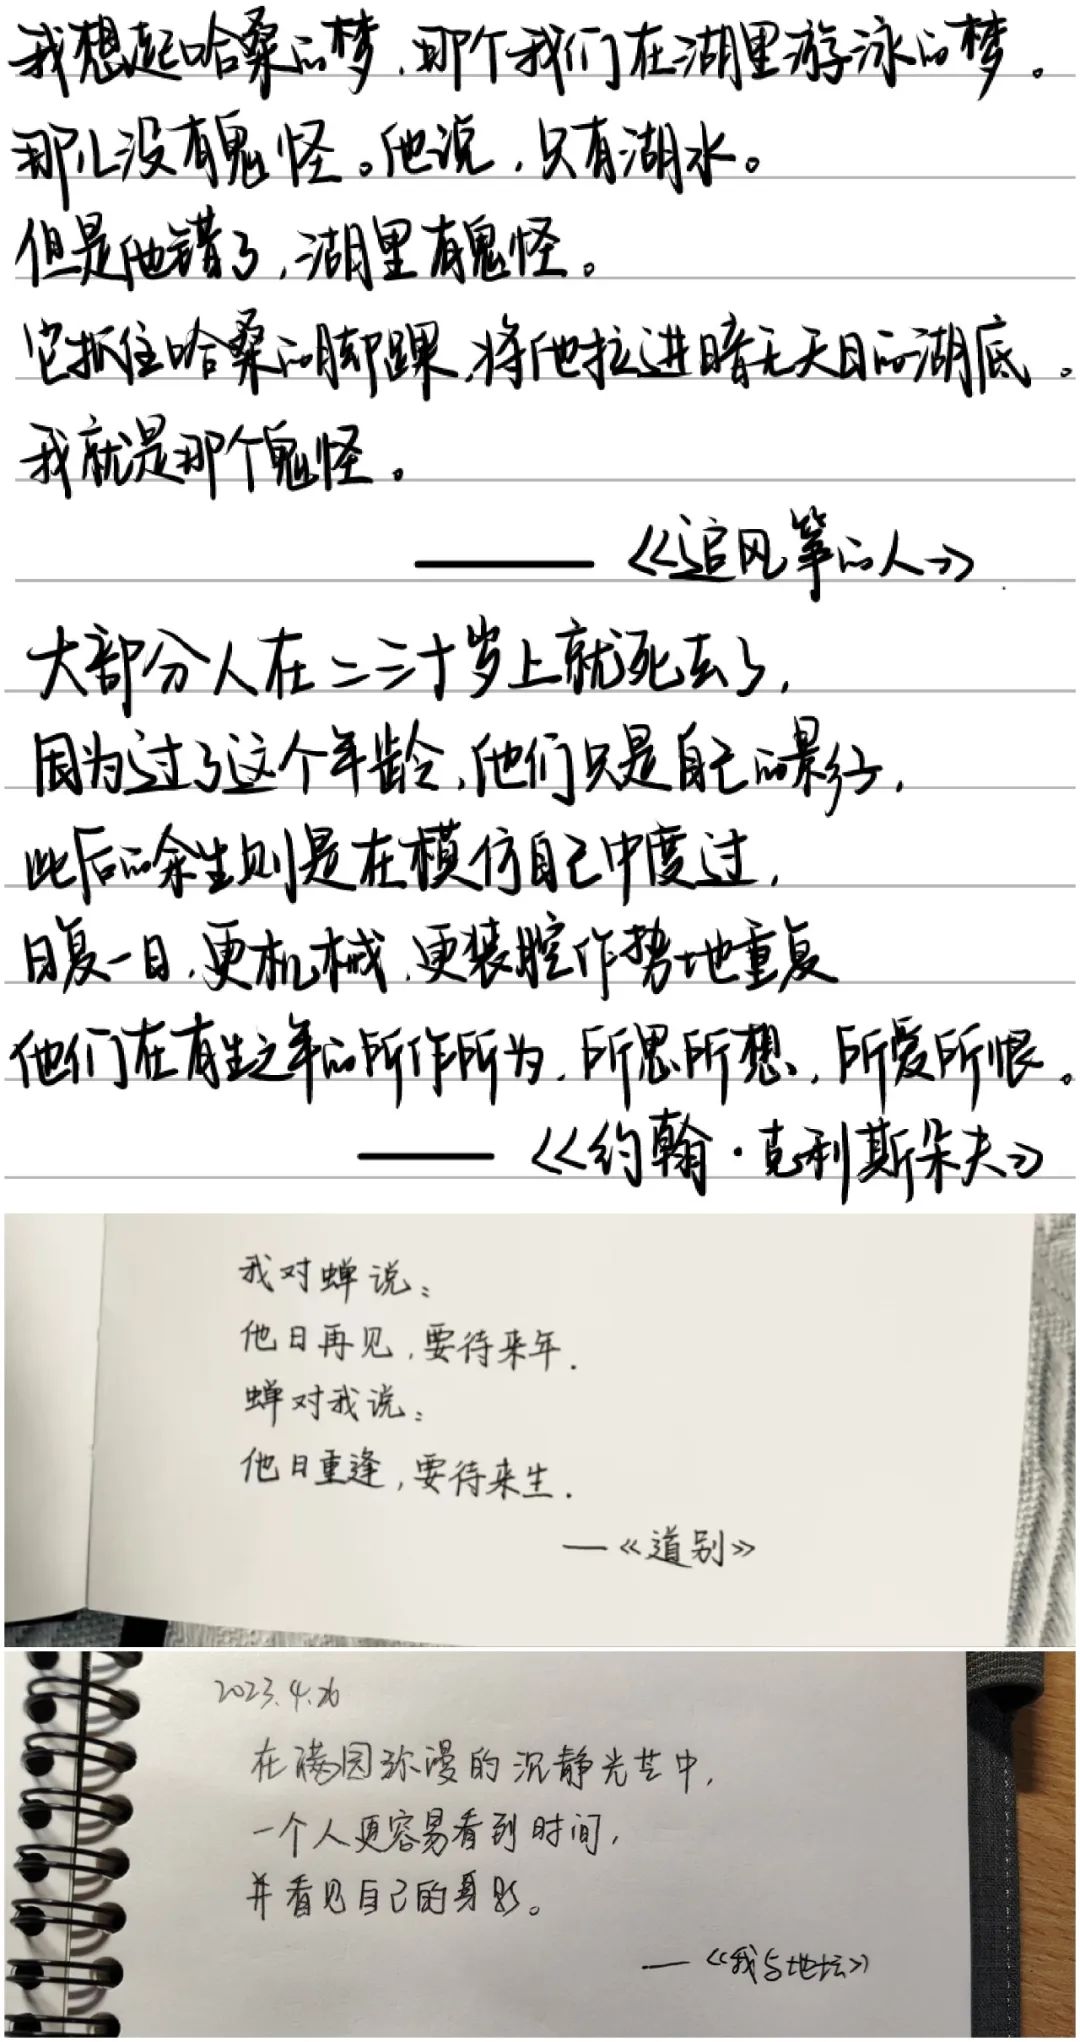 我想起哈桑的梦，那个我们在湖里游泳的梦。
那儿没有鬼怪。他说，只有湖水。
但是他错了，湖里有鬼怪。
它抓住哈桑的脚踝，将他拉进暗无天日的湖底。
我就是那个鬼怪。
——《追风筝的人》
大部分人在二三十岁上就死去了，
因为过了这个年龄，他们只是自己的影子，
此后的余生则是在模仿自己中度过，
日复一日，更机械，更装腔作势地重复
他们在有生之年的所作所为，所思所想，所爱所恨。
——《约翰·克利斯朵夫》
我对蝉说：
他日再见，要待来年.
蝉对我说：
他日重逢，要待来生.
—《道别》
2023.4.26
在满园弥漫的沉静光芒中，
一个人更容易看到时间，
并看见自己的身影。
—《我与地坛》